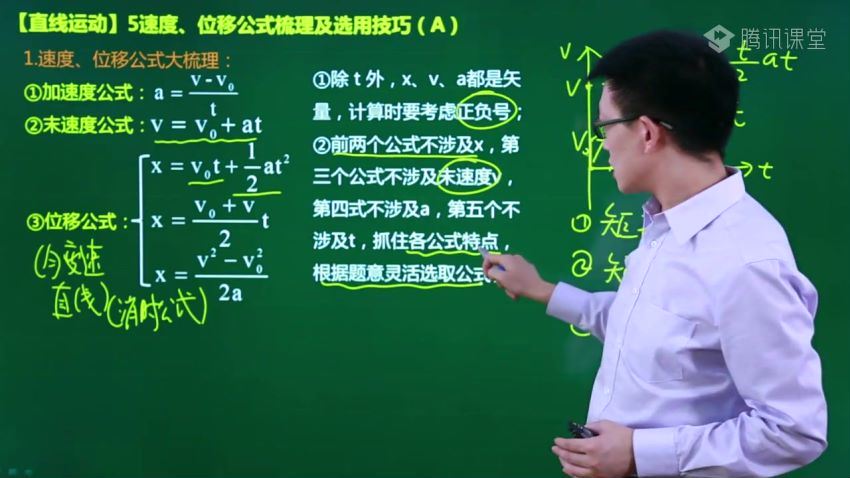 【直线运动】5速度、位移公式梳理及选用技巧(A)
1.速度、位移公式大梳理:
①加速度公式: a = (v - v₀)/t
②末速度公式: v = v₀ + at
③位移公式:
x = v₀t + 1/2 at²
x = (v₀ + v)/2 t
x = (v² - v₀²)/2a
(匀变速
直线)(消时公式)
①除 t 外,x、v、a都是矢
量,计算时要考虑正负号;
②前两个公式不涉及x,第
三个公式不涉及末速度v,
第四式不涉及a,第五个不
涉及t,抓住各公式特点,
根据题意灵活选取公式
腾讯课堂
v
v
t/2 at
t
t
① 矩
②